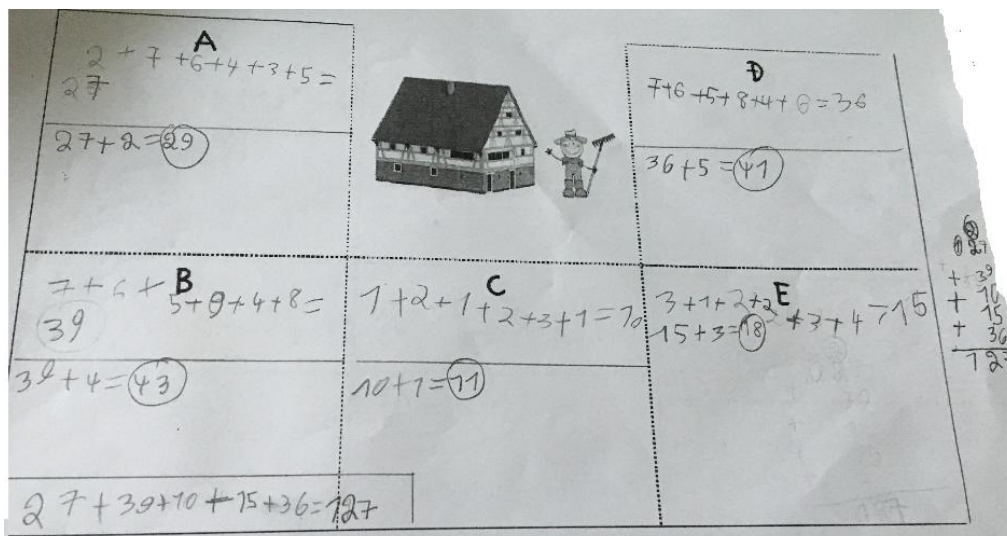 A
2 + 7 + 6 + 4 + 3 + 5 =
27
27 + 2 = 29
D
7 + 6 + 5 + 8 + 4 + 6 = 36
36 + 5 = 41
B
7 + 6 + 5 + 9 + 4 + 8 =
39
39 + 4 = 43
C
1 + 2 + 1 + 2 + 3 + 1 = 10
10 + 1 = 11
E
3 + 1 + 2 + 2 + 3 + 4 = 15
15 + 3 = 18
27
+ 39
+ 10
15
+ 36
127
27 + 39 + 10 + 15 + 36 = 127